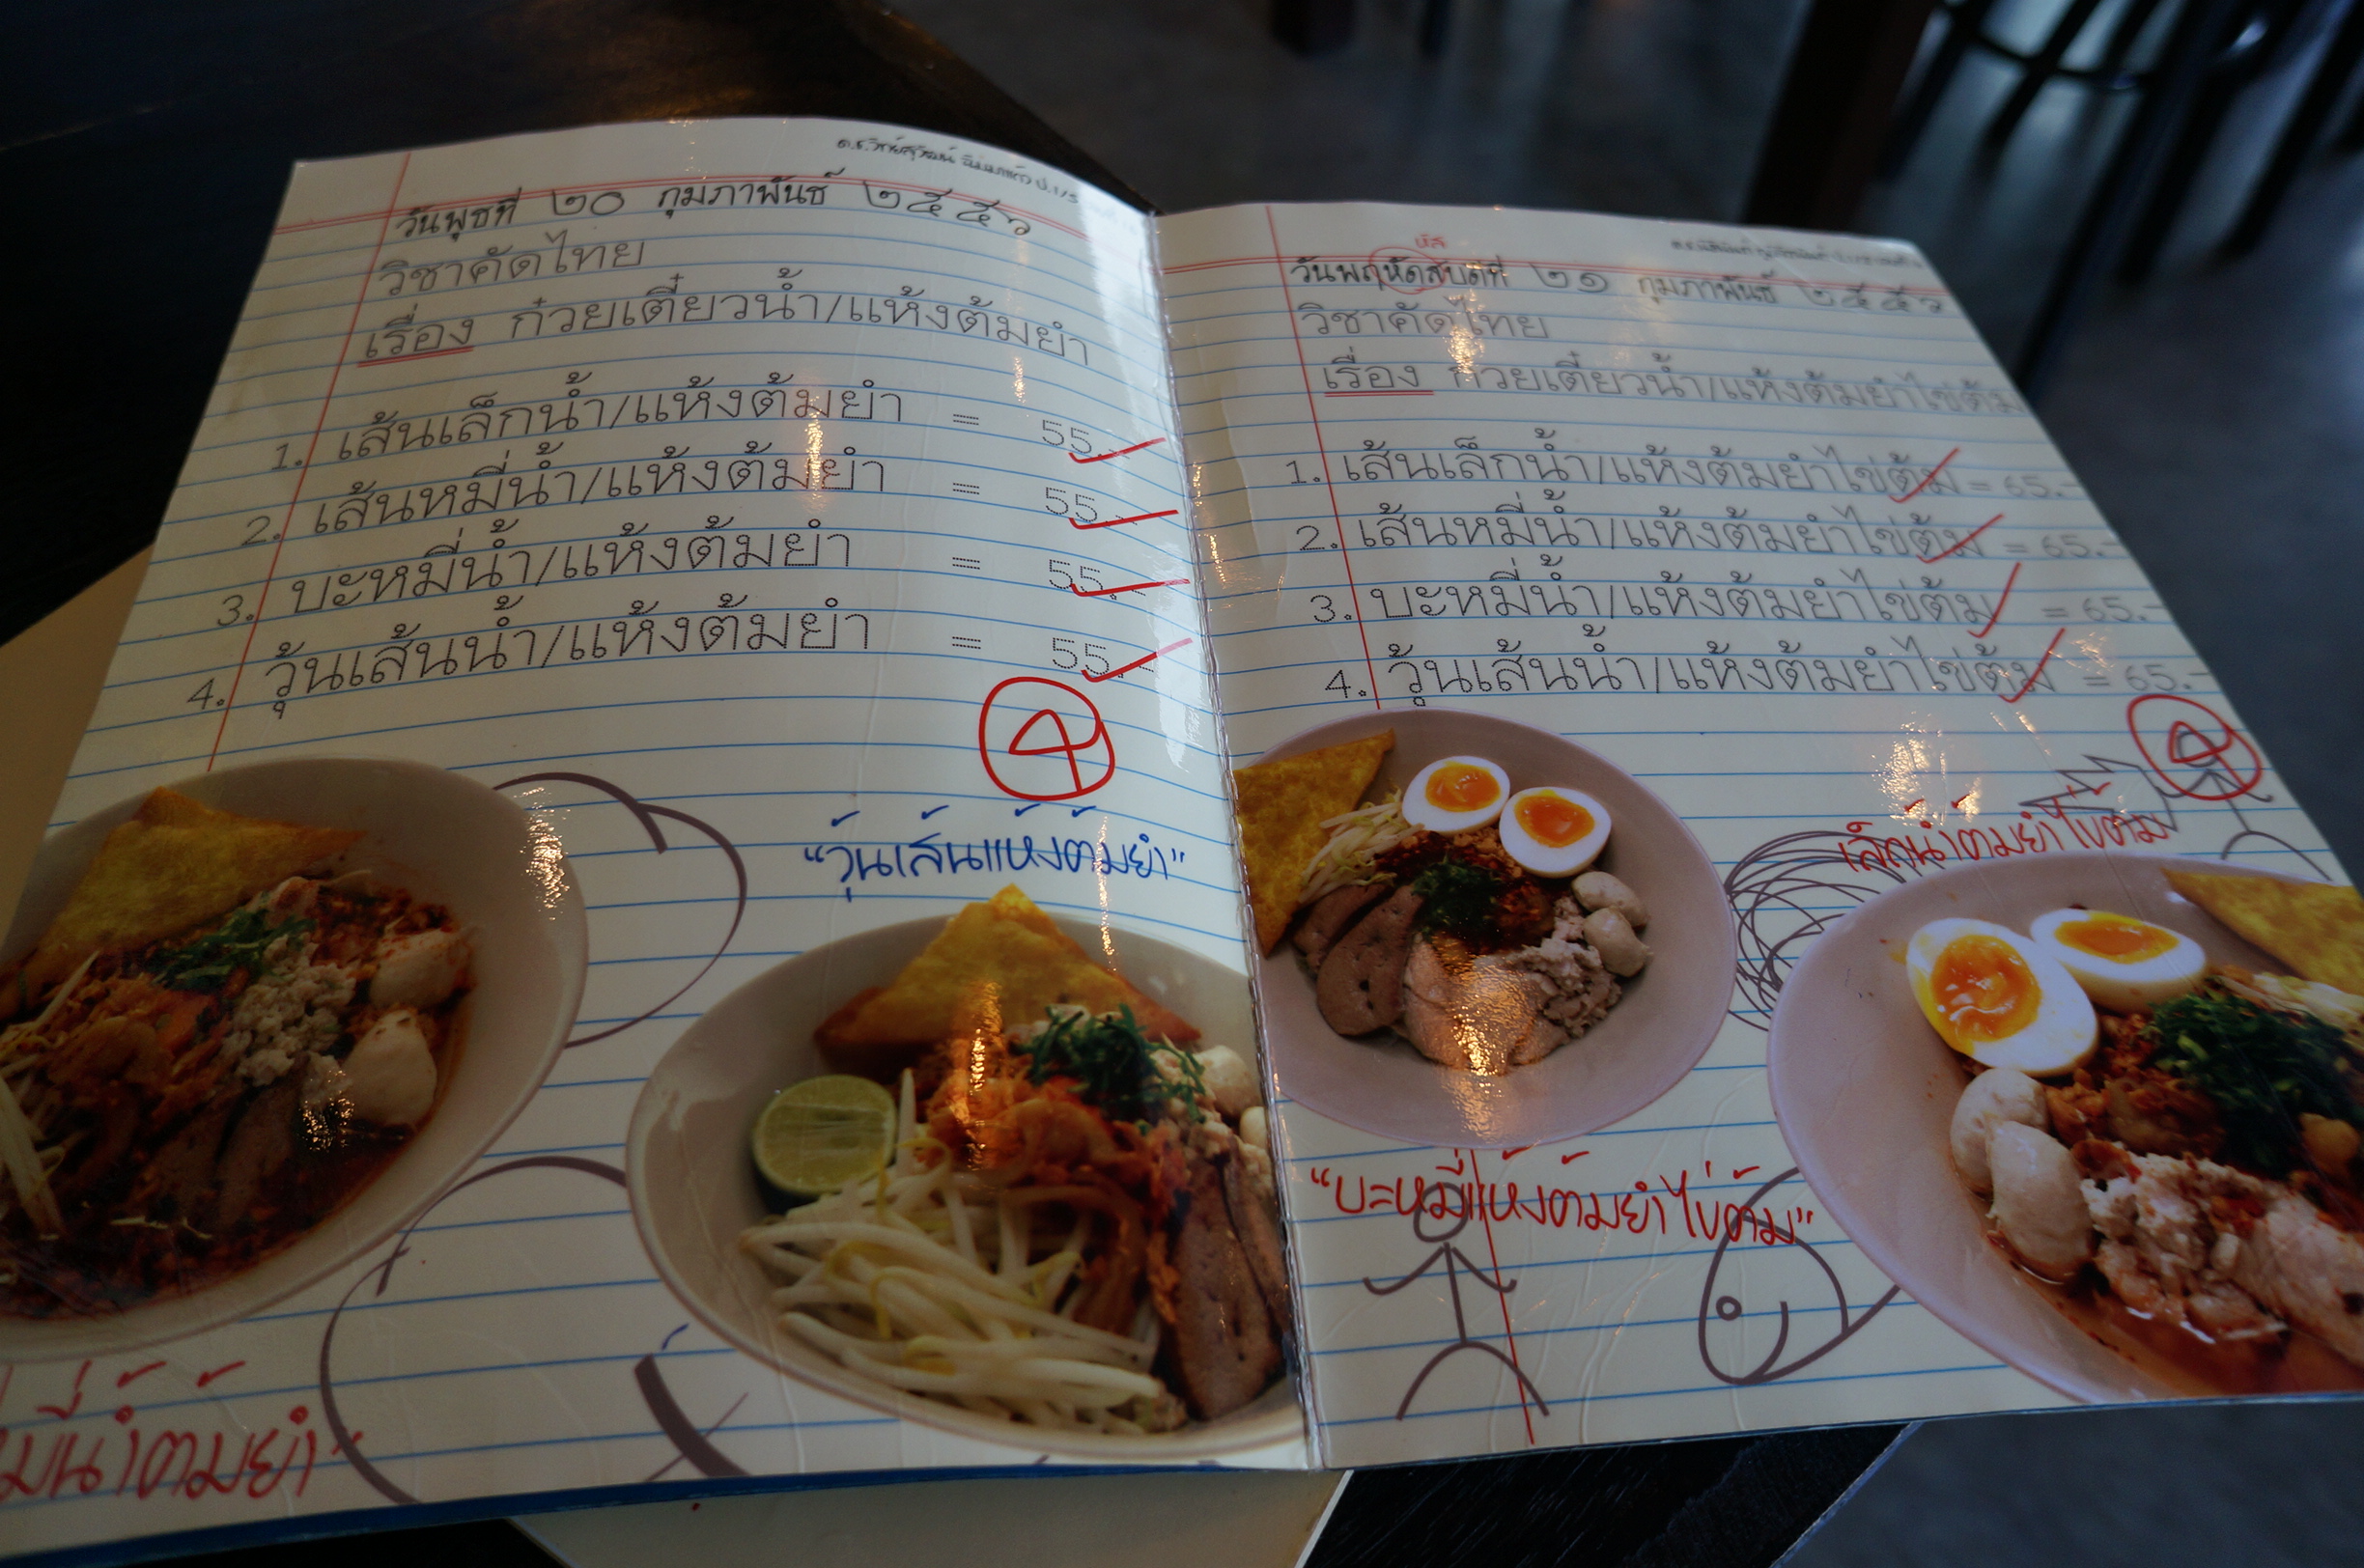 วันพุธที่ ๒๐ กุมภาพันธ์ ๒๕๕๖
วิชาคัดไทย
เรื่อง ก๋วยเตี๋ยวน้ำ/แห้งต้มยำ
1. เส้นเล็กน้ำ/แห้งต้มยำ = 55.-
2. เส้นหมี่น้ำ/แห้งต้มยำ = 55.-
3. บะหมี่น้ำ/แห้งต้มยำ = 55.-
4. วุ้นเส้นน้ำ/แห้งต้มยำ = 55.-
"วุ้นเส้นแห้งต้มยำ"
หมี่น้ำต้มยำ"
หัส
วันพฤหัดสบดีที่ ๒๑ กุมภาพันธ์ ๒๕๕๖
วิชาคัดไทย
เรื่อง ก๋วยเตี๋ยวน้ำ/แห้งต้มยำไข่ต้ม
1. เส้นเล็กน้ำ/แห้งต้มยำไข่ต้ม = 65.-
2. เส้นหมี่น้ำ/แห้งต้มยำไข่ต้ม = 65.-
3. บะหมี่น้ำ/แห้งต้มยำไข่ต้ม = 65.-
4. วุ้นเส้นน้ำ/แห้งต้มยำไข่ต้ม = 65.-
เล็กน้ำต้มยำไข่ต้ม
"บะหมี่แห้งต้มยำไข่ต้ม"